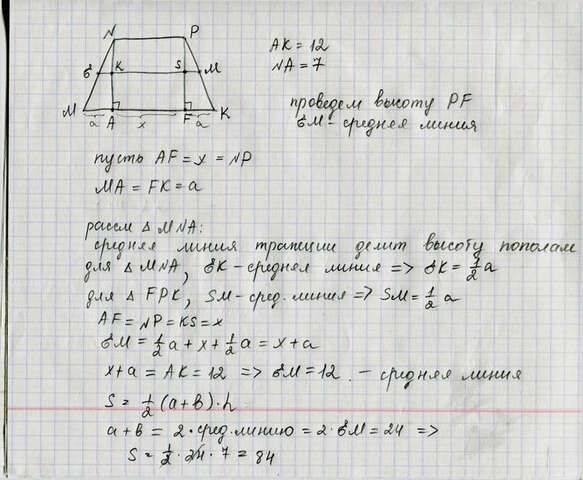 N P
AK = 12
NA = 7
E K S M
M A F K
a x a
проведем высоту PF
EM - средняя линия
пусть AF = x = NP
MA = FK = a
рассм △ MNA:
средняя линия трапции делит высоту пополам
для △ MNA, EK - средняя линия => EK = 1/2 a
для △ FPK, SM - сред. линия => SM = 1/2 a
AF = NP = KS = x
EM = 1/2 a + x + 1/2 a = x + a
x + a = AK = 12 => EM = 12 - средняя линия
S = 1/2 (a + b) · h
a + b = 2 · сред. линию = 2 · EM = 24 =>
S = 1/2 · 24 · 7 = 84